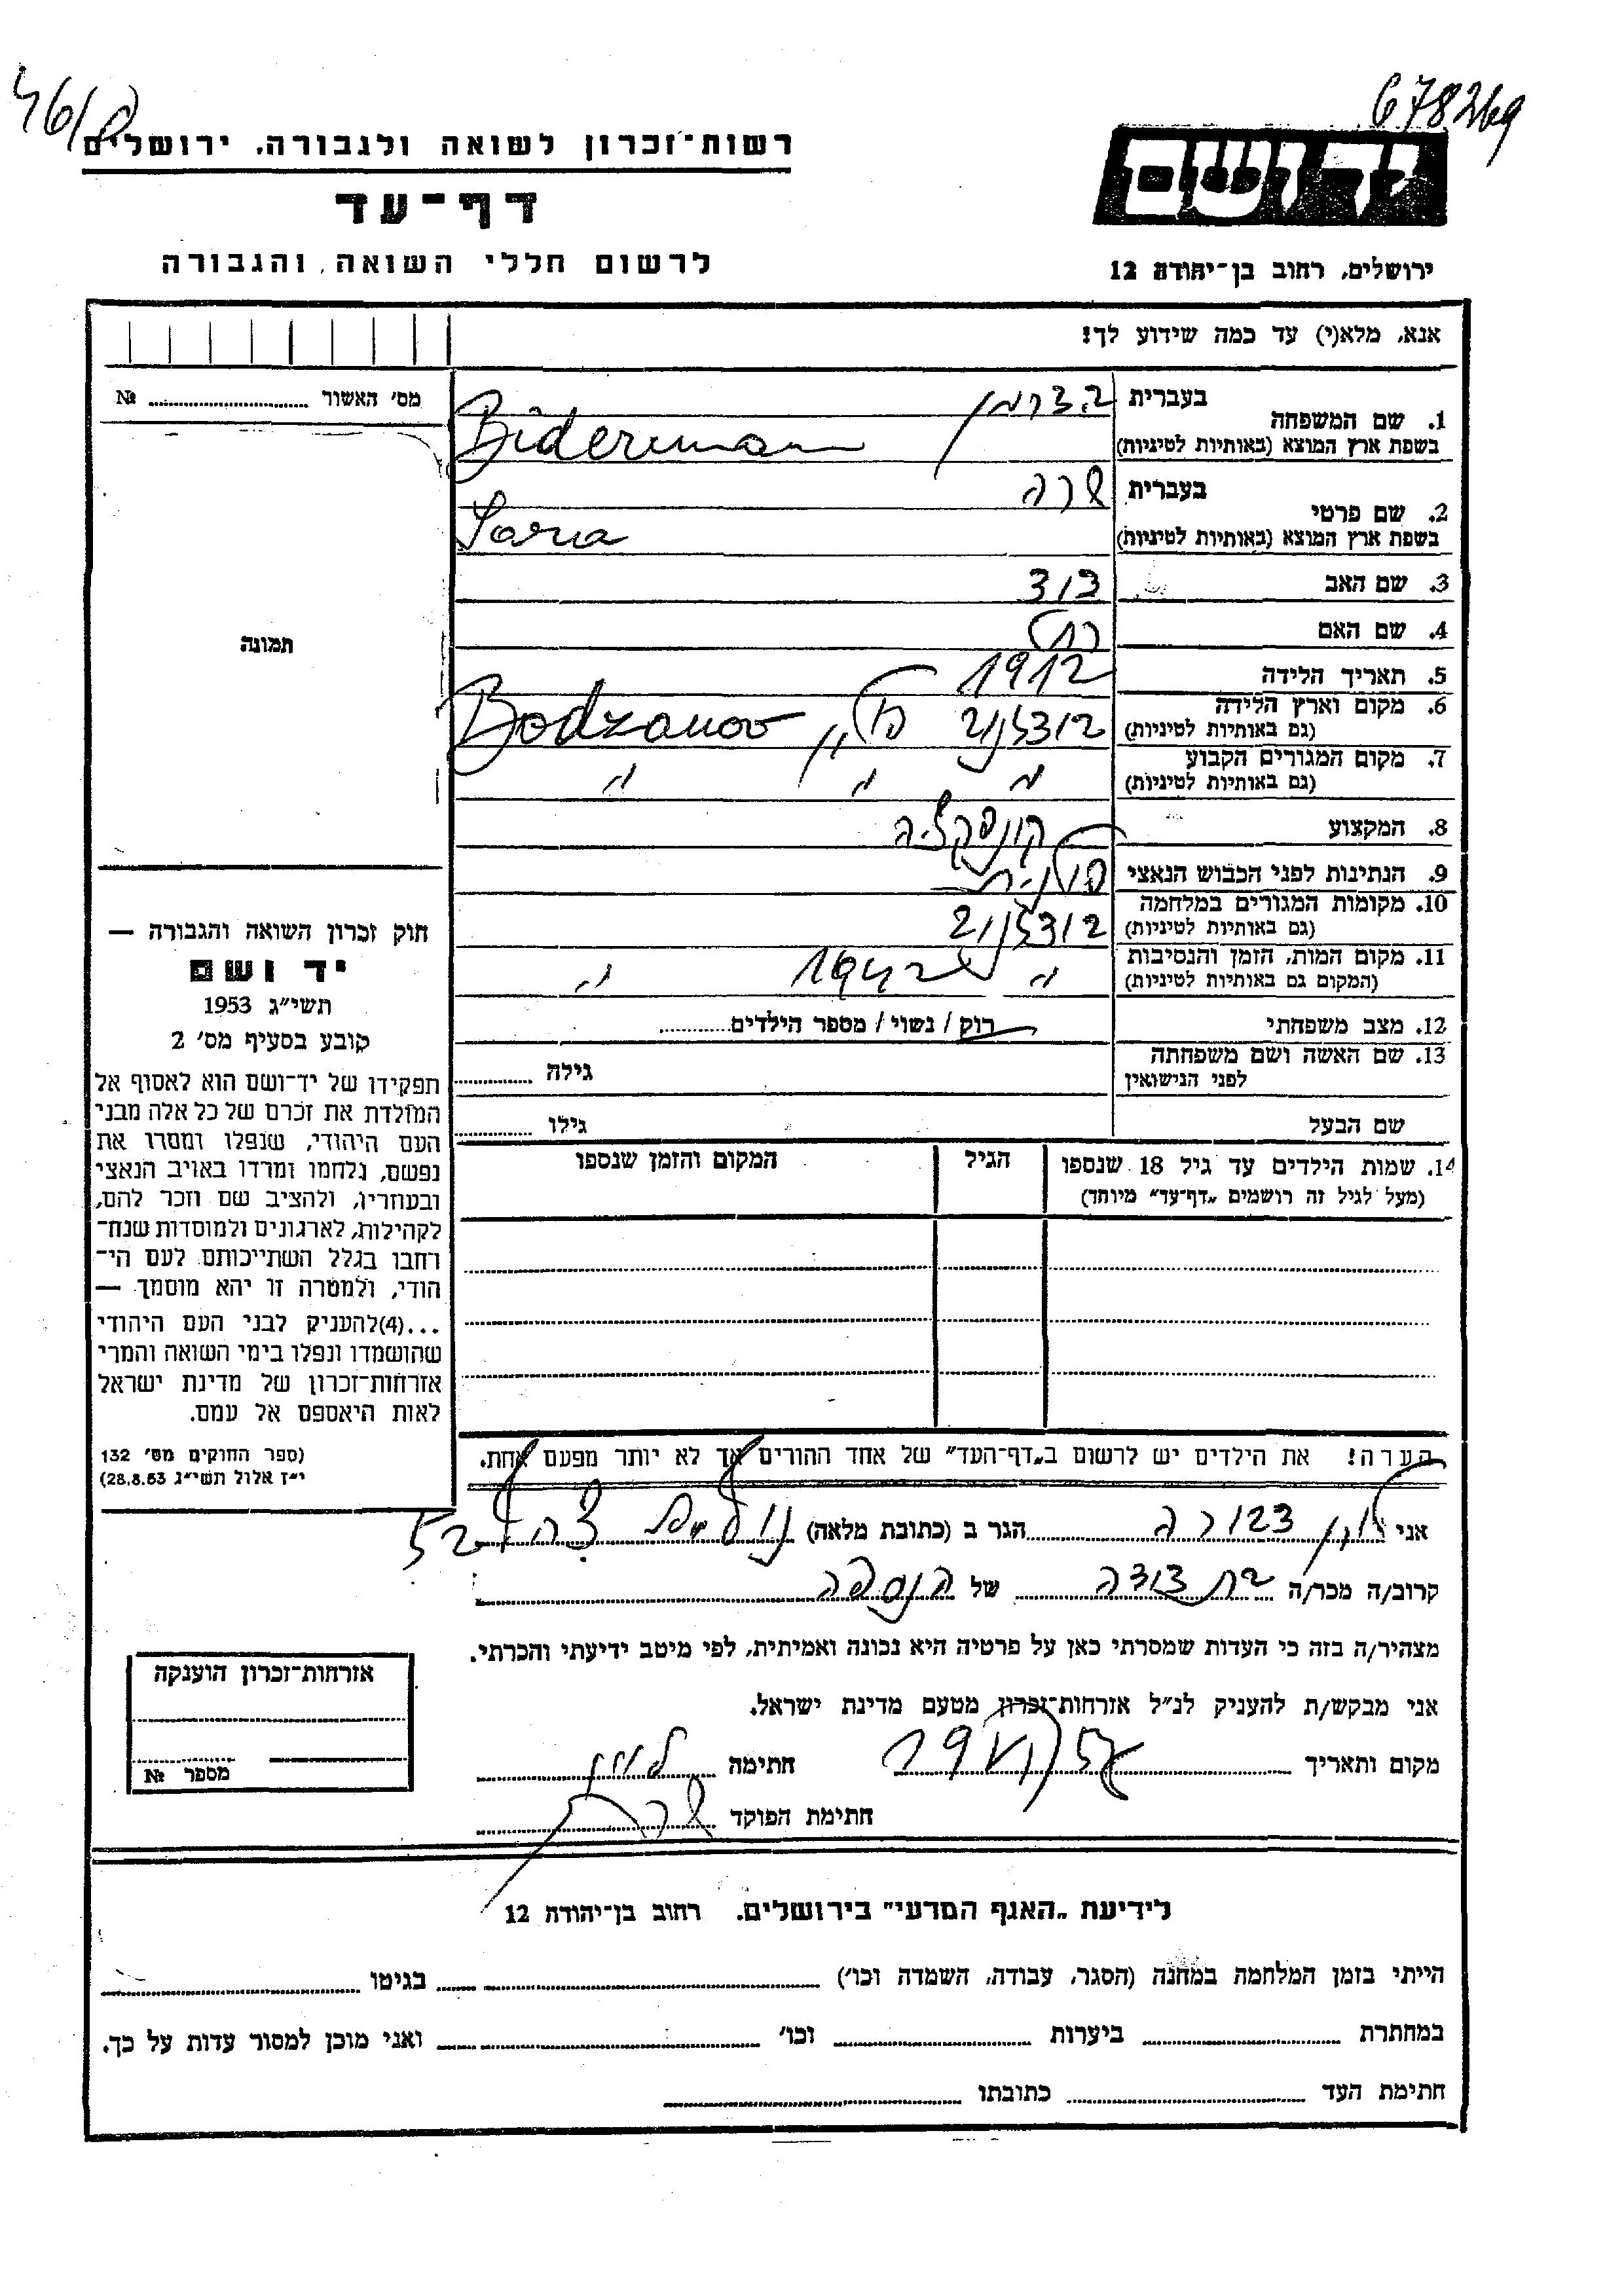 678269
46/פ
רשות־זכרון לשואה ולגבורה, ירושלים
יד ושם
דף־עד
לרשום חללי השואה והגבורה
ירושלים, רחוב בן־יהודה 12
אנא, מלא(י) עד כמה שידוע לך!
מס׳ האשור №
1. שם המשפחה בעברית בידרמן
בשפת ארץ המוצא (באותיות לטיניות) Biderman
2. שם פרטי בעברית שרה
בשפת ארץ המוצא (באותיות לטיניות) Sara
3. שם האב דוד
4. שם האם רחל
5. תאריך הלידה 1912
6. מקום וארץ הלידה
(גם באותיות לטיניות) בודזנוב פולין Bodzanow
7. מקום המגורים הקבוע
(גם באותיות לטיניות) " " "
8. המקצוע קונפקציה
9. הנתינות לפני הכבוש הנאצי פולנית
10. מקומות המגורים במלחמה
(גם באותיות לטיניות) בודזנוב
11. מקום המות, הזמן והנסיבות
(המקום גם באותיות לטיניות) " "
12. מצב משפחתי רוק / נשוי / מספר הילדים
13. שם האשה ושם משפחתה
לפני הנישואין גילה
שם הבעל גילו
14. שמות הילדים עד גיל 18 שנספו הגיל המקום והזמן שנספו
(מעל לגיל זה רושמים „דף־עד" מיוחד)
תמונה
חוק זכרון השואה והגבורה —
יד ושם
תשי״ג 1953
קובע בסעיף מס׳ 2
תפקידו של יד־ושם הוא לאסוף אל
המולדת את זכרם של כל אלה מבני
העם היהודי, שנפלו ומסרו את
נפשם, נלחמו ומרדו באויב הנאצי
ובעוזריו, ולהציב שם וזכר להם,
לקהילות, לארגונים ולמוסדות שנח־
רחבו בגלל השתייכותם לעם הי־
הודי, ולמטרה זו יהא מוסמך —
...(4)להעניק לבני העם היהודי
שהושמדו ונפלו בימי השואה והמרי
אזרחות־זכרון של מדינת ישראל
לאות היאספם אל עמם.
(ספר החוקים מס׳ 132
י״ז אלול תשי״ג 28.8.53)
הערה! את הילדים יש לרשום ב„דף־העד" של אחד ההורים אך לא יותר מפעם אחת.
אני דבורה הגר ב (כתובת מלאה)
קרוב/ה מכר/ה בת דודה של הנספה
מצהיר/ה בזה כי העדות שמסרתי כאן על פרטיה היא נכונה ואמיתית, לפי מיטב ידיעתי והכרתי.
אני מבקש/ת להעניק לנ״ל אזרחות־זכרון מטעם מדינת ישראל.
מקום ותאריך חתימה
חתימת הפוקד
אזרחות־זכרון הוענקה
מספר №
לידיעת „האגף המדעי" בירושלים, רחוב בן־יהודה 12
הייתי בזמן המלחמה במחנה (הסגר, עבודה, השמדה וכו׳) בגיטו
במחתרת ביערות וכו׳ ואני מוכן למסור עדות על כך.
חתימת העד כתובתו